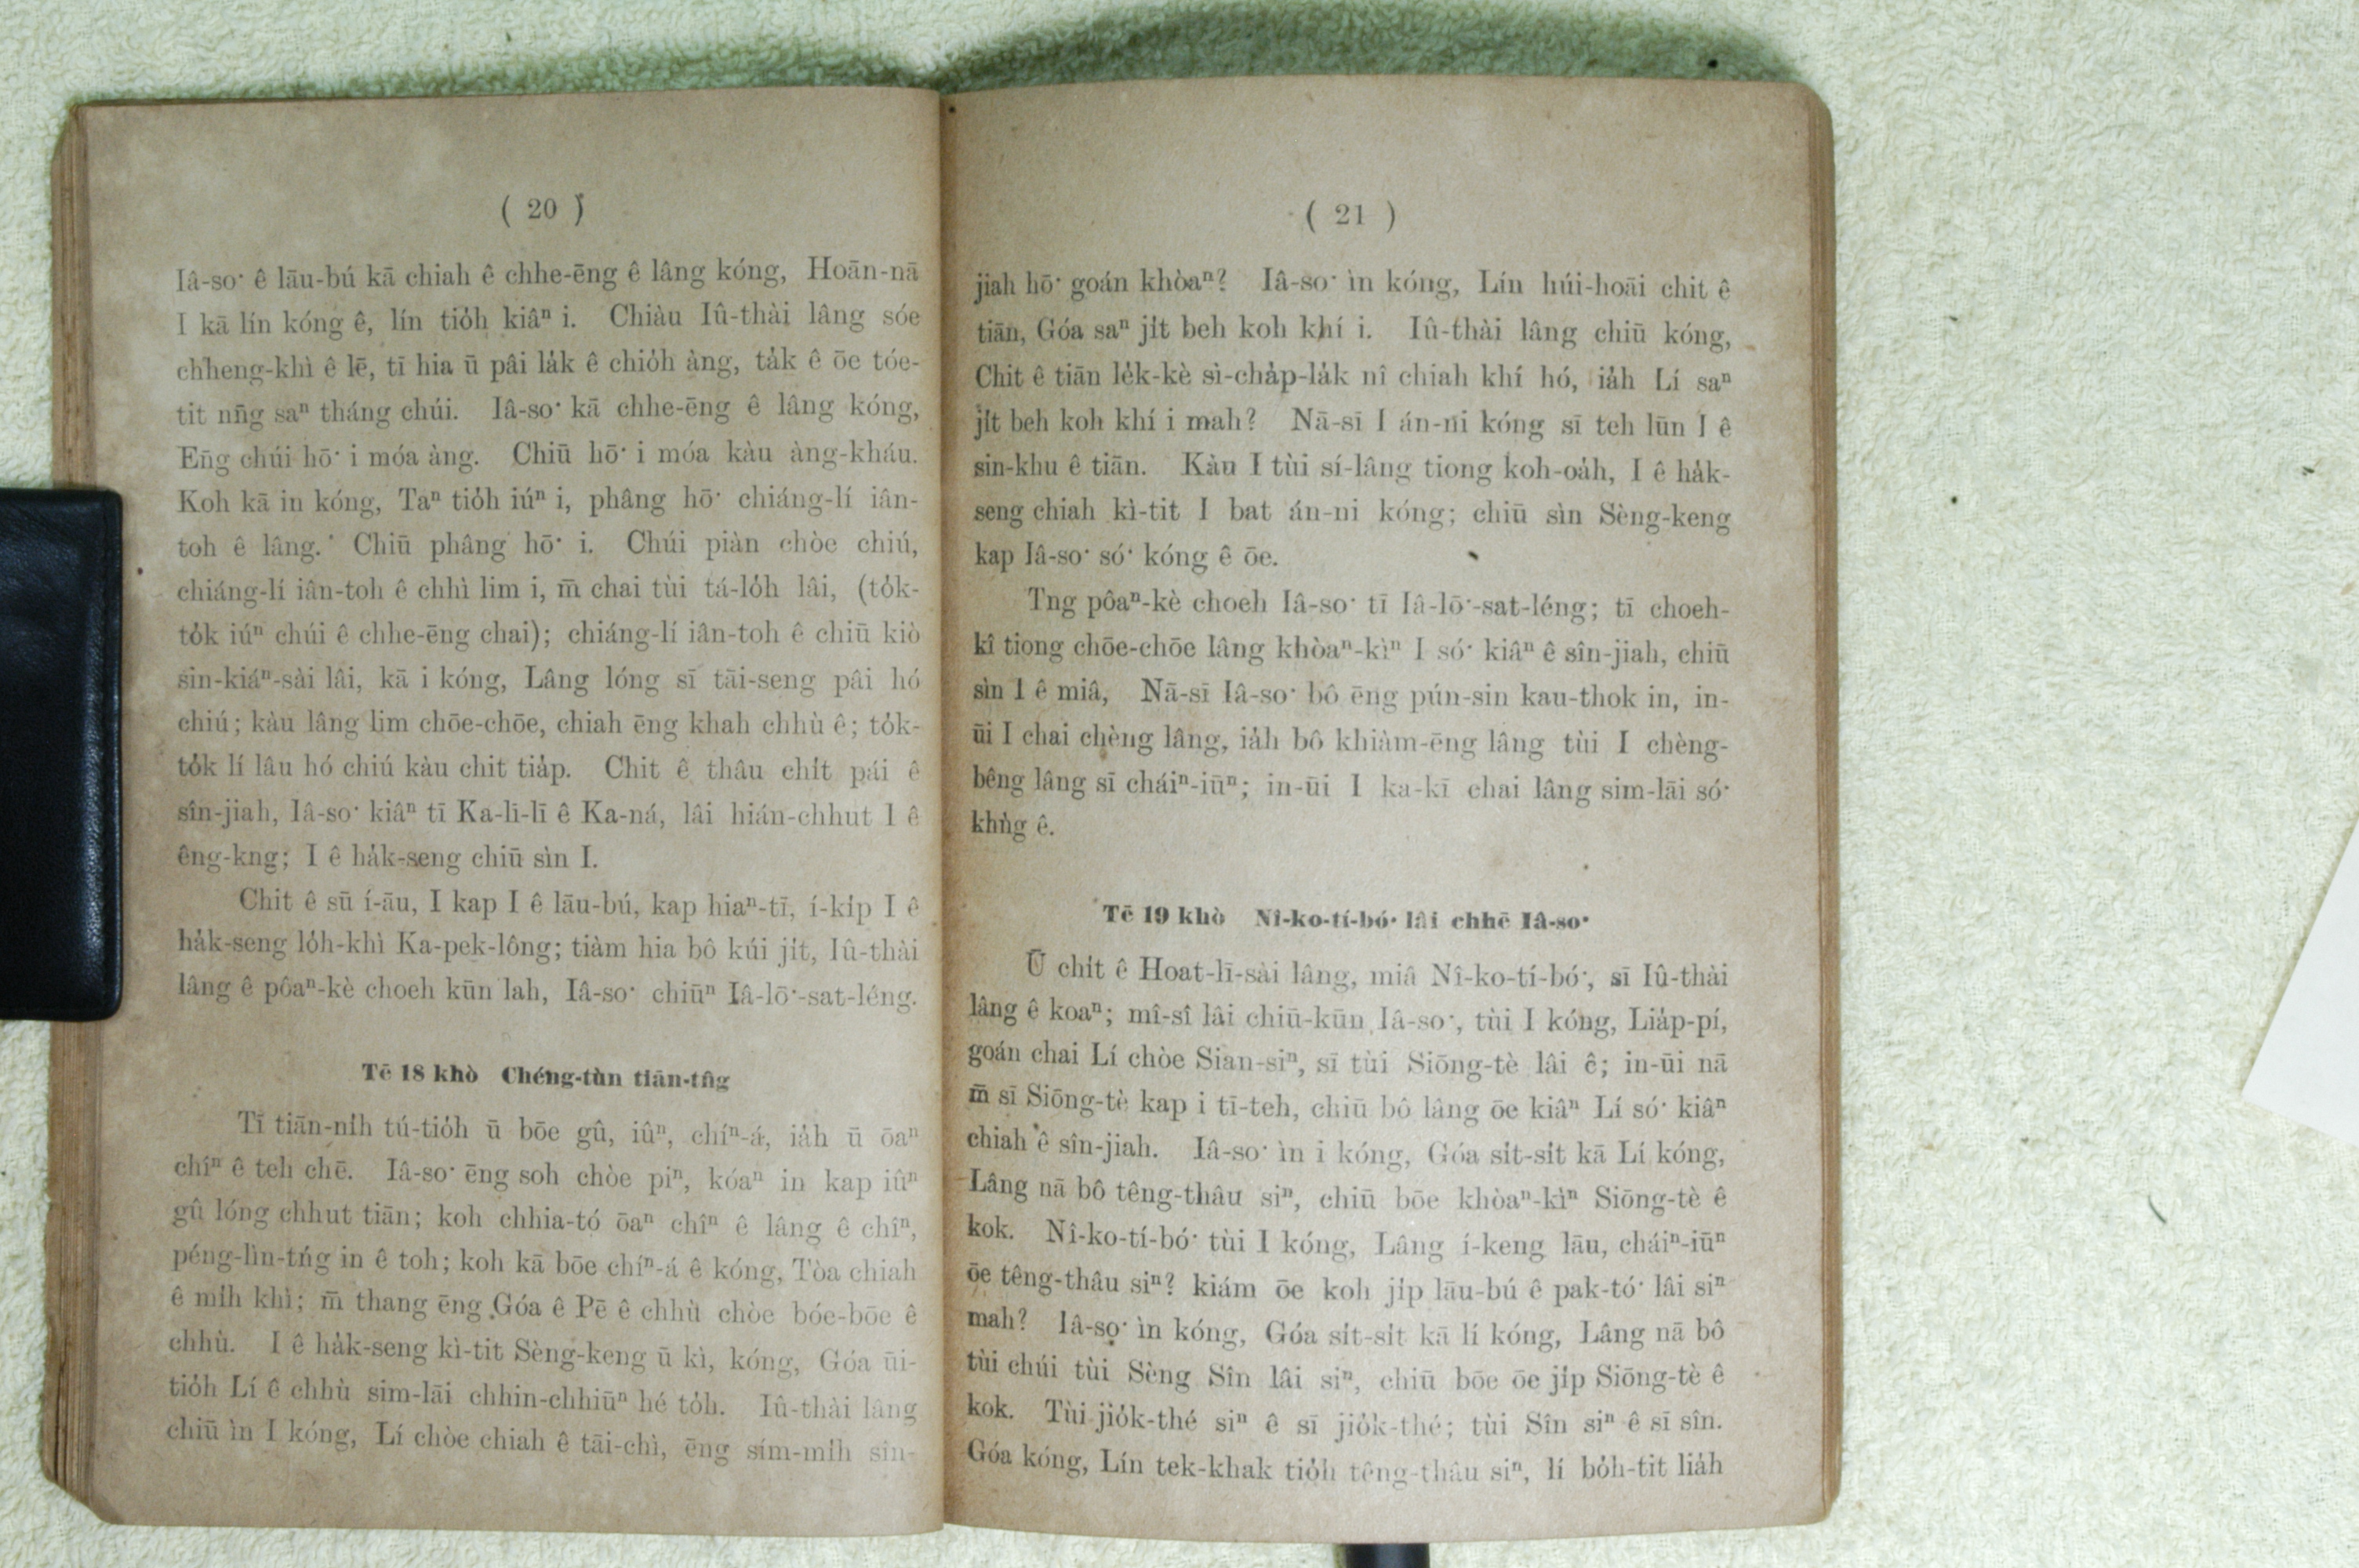 ( 20 )
Iâ-so͘ ê lāu-bú kā chiah ê chhe-ēng ê lâng kóng, Hoān-nā
I kā lín kóng ê, lín tio̍h kiâⁿ i. Chiàu Iû-thài lâng sóe
chheng-khì ê lē, tī hia ū pâi la̍k ê chio̍h àng, ta̍k ê ōe tóe-
tit nn̄g saⁿ tháng chúi. Iâ-so͘ kā chhe-ēng ê lâng kóng,
Eñg chúi hō͘ i móa àng. Chiū hō͘ i móa kàu àng-kháu.
Koh kā in kóng, Taⁿ tio̍h iúⁿ i, phâng hō͘ chiáng-lí iân-
toh ê lâng. Chiū phâng hō͘ i. Chúi piàn chòe chiú,
chiáng-lí iân-toh ê chhì lim i, m̄ chai tùi tá-lo̍h lâi, (to̍k-
to̍k iúⁿ chúi ê chhe-ēng chai); chiáng-lí iân-toh ê chiū kiò
sin-kiáⁿ-sài lâi, kā i kóng, Lâng lóng sī tāi-seng pâi hó
chiú; kàu lâng lim chōe-chōe, chiah ēng khah chhù ê; to̍k-
to̍k lí lâu hó chiú kàu chit tia̍p. Chit ê thâu chi̍t pái ê
sîn-jiah, Iâ-so͘ kiâⁿ tī Ka-lī-lī ê Ka-ná, lâi hián-chhut I ê
êng-kng; I ê ha̍k-seng chiū sìn I.
Chit ê sū í-āu, I kap I ê lāu-bú, kap hiaⁿ-tī, í-ki̍p I ê
ha̍k-seng lo̍h-khì Ka-pek-lông; tiàm hia bô kúi ji̍t, Iû-thài
lâng ê pôaⁿ-kè choeh kūn lah, Iâ-so͘ chiūⁿ Iâ-lō͘-sat-léng.
Tē 18 khò Chéng-tùn tiān-tn̂g
Tī tiān-ni̍h tú-tio̍h ū bōe gû, iûⁿ, chíⁿ-á, ia̍h ū ōaⁿ
chîⁿ ê teh chē. Iâ-so͘ ēng soh chòe piⁿ, kóaⁿ in kap iûⁿ
gû lóng chhut tiān; koh chhia-tó ōaⁿ chîⁿ ê lâng ê chîⁿ,
péng-lìn-tńg in ê toh; koh kā bōe chíⁿ-á ê kóng, Tòa chiah
ê mi̍h khì; m̄ thang ēng Góa ê Pē ê chhù chòe bóe-bōe ê
chhù. I ê ha̍k-seng kì-tit Sèng-keng ū kì, kóng, Góa ūi-
tio̍h Lí ê chhù sim-lāi chhin-chhiūⁿ hé to̍h. Iû-thài lâng
chiū ìn I kóng, Lí chòe chiah ê tāi-chì, ēng sím-mi̍h sîn-
( 21 )
jiah hō͘ goán khòaⁿ? Iâ-so͘ ìn kóng, Lín húi-hoāi chit ê
tiān, Góa saⁿ ji̍t beh koh khí i. Iû-thài lâng chiū kóng,
Chit ê tiān le̍k-kè sì-cha̍p-la̍k nî chiah khí hó, ia̍h Lí saⁿ
ji̍t beh koh khí i mah? Nā-sī I án-ni kóng sī teh lūn I ê
sin-khu ê tiān. Kàu I tùi sí-lâng tiong koh-oa̍h, I ê ha̍k-
seng chiah kì-tit I bat án-ni kóng; chiū sìn Sèng-keng
kap Iâ-so͘ só͘ kóng ê ōe.
Tng pôaⁿ-kè choeh Iâ-so͘ tī Iâ-lō͘-sat-léng; tī choeh-
kî tiong chōe-chōe lâng khòaⁿ-kìⁿ I só͘ kiâⁿ ê sîn-jiah, chiū
sìn I ê miâ, Nā-sī Iâ-so͘ bô ēng pún-sin kau-thok in, in-
ūi I chai chèng lâng, ia̍h bô khiàm-ēng lâng tùi I chèng-
bêng lâng sī cháiⁿ-iūⁿ; in-ūi I ka-kī chai lâng sim-lāi só͘
khǹg ê.
Tē 19 khò Nî-ko-tí-bó͘ lâi chhē Iâ-so͘
Ū chi̍t ê Hoat-lī-sài lâng, miâ Nî-ko-tí-bó͘, sī Iû-thài
lâng ê koaⁿ; mî-sî lâi chiū-kūn Iâ-so͘, tùi I kóng, Lia̍p-pí,
goán chai Lí chòe Sian-siⁿ, sī tùi Siōng-tè lâi ê; in-ūi nā
m̄ sī Siōng-tè kap i tī-teh, chiū bô lâng ōe kiâⁿ Lí só͘ kiâⁿ
chiah ê sîn-jiah. Iâ-so͘ ìn i kóng, Góa si̍t-si̍t kā Lí kóng,
Lâng nā bô têng-thâu siⁿ, chiū bōe khòaⁿ-kìⁿ Siōng-tè ê
kok. Nî-ko-tí-bó͘ tùi I kóng, Lâng í-keng lāu, cháiⁿ-iūⁿ
ōe têng-thâu siⁿ? kiám ōe koh ji̍p lāu-bú ê pak-tó͘ lâi siⁿ
mah? Iâ-so͘ ìn kóng, Góa si̍t-si̍t kā lí kóng, Lâng nā bô
tùi chúi tùi Sèng Sîn lâi siⁿ, chiū bōe ōe ji̍p Siōng-tè ê
kok. Tùi jio̍k-thé siⁿ ê sī jio̍k-thé; tùi Sîn siⁿ ê sī sîn.
Góa kóng, Lín tek-khak tio̍h têng-thâu siⁿ, lí bo̍h-tit lia̍h